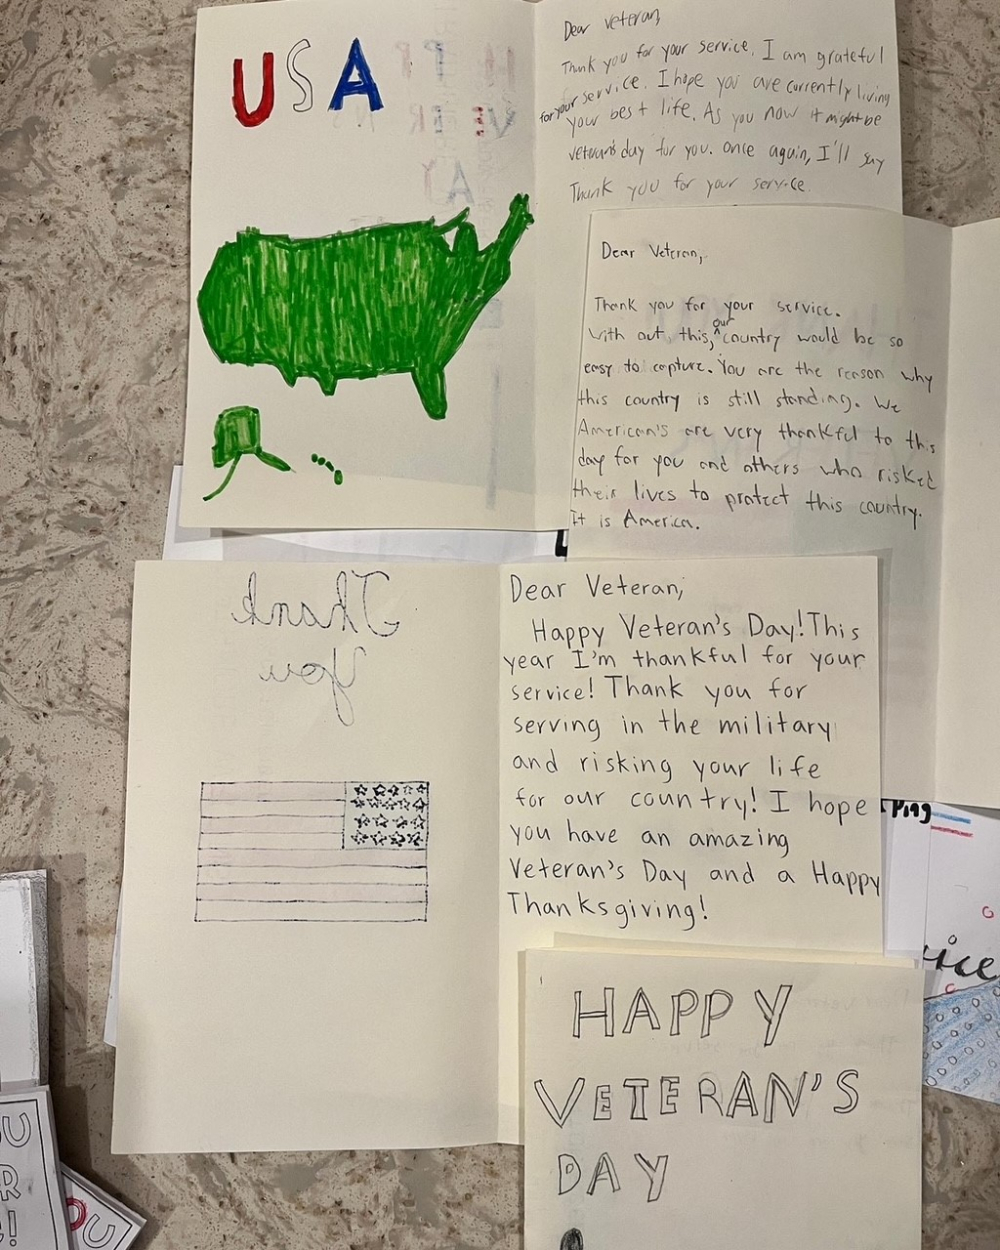 USA
Dear Veteran,
Thank you for your service. I am grateful
for your service. I hope you are currently living
your best life. As you now it might be
veteran's day for you. once again, I'll say
Thank you for your service.
Dear Veteran,
Thank you for your service.
With out, this, our country would be so
easy to capture. You are the reason why
this country is still standing. We
American's are very thankful to this
day for you and others who risked
their lives to protect this country.
It is America.
Thank
you
Dear Veteran,
Happy Veteran's Day! This
year I'm thankful for your
service! Thank you for
serving in the military
and risking your life
for our country! I hope
you have an amazing
Veteran's Day and a Happy
Thanksgiving!
HAPPY
VETERAN'S
DAY